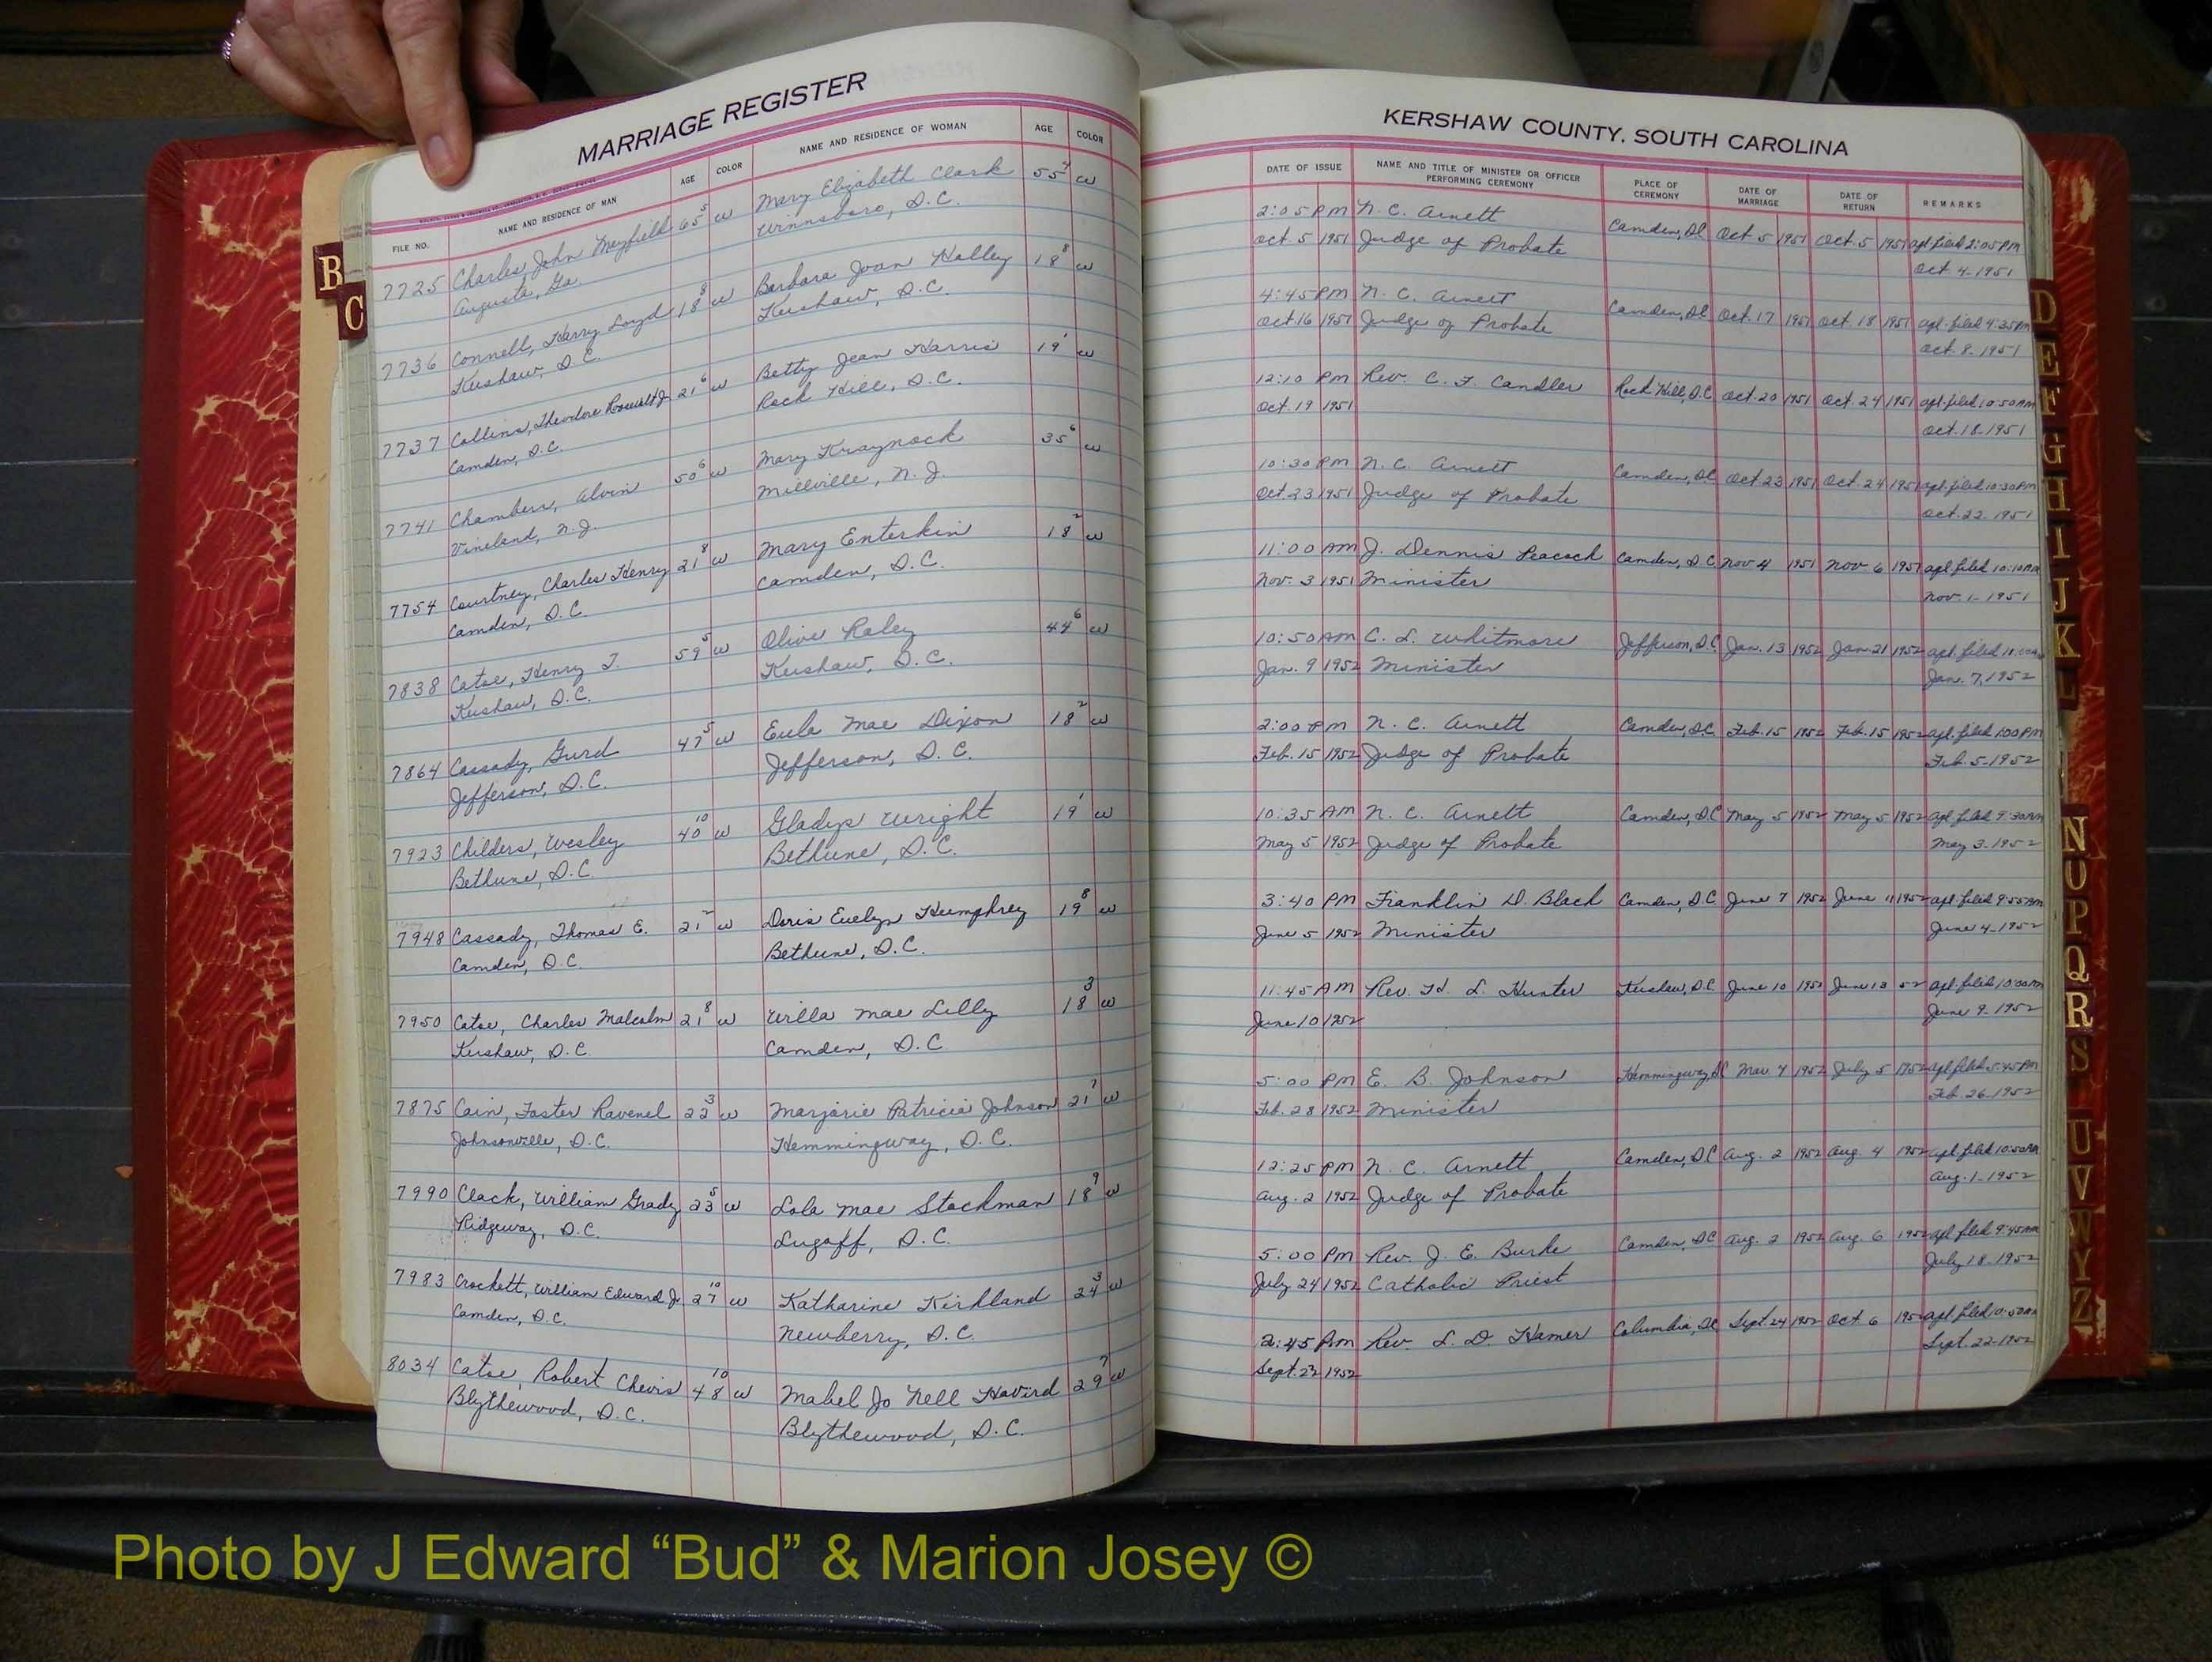 MARRIAGE REGISTER
FILE NO. NAME AND RESIDENCE OF MAN AGE COLOR NAME AND RESIDENCE OF WOMAN AGE COLOR
7725 Charles, John Mayfield 65 5 w Mary Elizabeth Clark 55 w
Augusta, Ga. Winnsboro, S.C.
7736 Connell, Harry Loyd 18 8 w Barbara Joan Halley 18 8 w
Kershaw, S.C. Kershaw, S.C.
7737 Collins, Theodore Roosevelt Jr. 21 6 w Betty Jean Harris 19 1 w
Camden, S.C. Rock Hill, S.C.
7741 Chambers, Alvin 50 6 w Mary Kraynock 35 6 w
Vineland, N.J. Millville, N.J.
7754 Courtney, Charles Henry 21 8 w Mary Enterkin 18 2 w
Camden, S.C. Camden, S.C.
7838 Catoe, Henry T. 59 5 w Olive Raley 44 6 w
Kershaw, S.C. Kershaw, S.C.
7864 Cassady, Gurd 47 5 w Eula Mae Dixon 18 2 w
Jefferson, S.C. Jefferson, S.C.
7923 Childers, Wesley 40 10 w Gladys Wright 19 1 w
Bethune, S.C. Bethune, S.C.
7948 Cassady, Thomas E. 21 2 w Doris Evelyn Humphrey 19 8 w
Camden, S.C. Bethune, S.C.
7950 Catoe, Charles Malcolm 21 8 w Willa Mae Lilly 18 3 w
Kershaw, S.C. Camden, S.C
7875 Cain, Foster Ravenel 22 3 w Marjorie Patricia Johnson 21 7 w
Johnsonville, S.C. Hemmingway, S.C.
7990 Clack, William Grady 23 5 w Lola Mae Stockman 18 9 w
Ridgeway, S.C. Lugoff, S.C.
7983 Crockett, William Edward Jr. 27 10 w Katharine Kirkland 24 3 w
Camden, S.C. Newberry, S.C.
8034 Catoe, Robert Chevis 48 10 w Mabel Jo Nell Havird 29 7 w
Blythewood, S.C. Blythewood, S.C.
KERSHAW COUNTY, SOUTH CAROLINA
DATE OF ISSUE NAME AND TITLE OF MINISTER OR OFFICER PERFORMING CEREMONY PLACE OF CEREMONY DATE OF MARRIAGE DATE OF RETURN REMARKS
2:05 PM N. C. Arnett Camden, SC Oct 5 1951 Oct. 5 1951 apl filed 2:05 PM
Oct. 5 1951 Judge of Probate Oct. 4. 1951
4:45 PM N. C. Arnett Camden, SC Oct. 17 1951 Oct. 18 1951 apl. filed 4:35 PM
Oct. 16 1951 Judge of Probate Oct. 8. 1951
12:10 PM Rev. C. F. Candler Rock Hill, S.C. Oct. 20 1951 Oct. 24 1951 apl. filed 10:50 AM
Oct. 19 1951 Oct. 18. 1951
10:30 PM N. C. Arnett Camden, SC Oct 23 1951 Oct. 24 1951 apl. filed 10:30 PM
Oct. 23 1951 Judge of Probate Oct. 22. 1951
11:00 AM J. Dennis Peacock Camden, S.C Nov 4 1951 Nov. 6 1951 apl. filed 10:10 AM
Nov. 3 1951 Minister Nov. 1 - 1951
10:50 AM C. L. Whitmore Jefferson, S.C Jan. 13 1952 Jan. 21 1952 apl. filed
Jan. 9 1952 Minister Jan. 7, 1952
2:00 PM N. C. Arnett Camden, S.C Feb. 15 1952 Feb. 15 1952 apl. filed 1:00 PM
Feb. 15 1952 Judge of Probate Feb. 5 - 1952
10:35 AM N. C. Arnett Camden, S.C May 5 1952 May 5 1952 apl filed 9:30 AM
May 5 1952 Judge of Probate May 3. 1952
3:40 PM Franklin D. Black Camden, S.C June 7 1952 June 11 1952 apl. filed 9:55 AM
June 5 1952 Minister June 4 - 1952
11:45 AM Rev. H. L. Hunter Kershaw, S.C. June 10 1952 June 13 52 apl. filed 10:00 AM
June 10 1952 June 9 - 1952
5:00 PM E. B. Johnson Hemmingway, SC Mar. 4 1952 July 5 1952 apl filed 5:45 PM
Feb. 28 1952 Minister Feb. 26 - 1952
12:25 PM N. C. Arnett Camden, S.C Aug. 2 1952 Aug. 4 1952 apl. filed 10:50 AM
Aug. 2 1952 Judge of Probate Aug. 1 - 1952
5:00 PM Rev. J. E. Burke Camden, SC Aug. 2 1952 Aug. 6 1952 apl filed 9:45 AM
July 24 1952 Catholic Priest July 18. 1952
2:45 PM Rev. L. D. Hamer Columbia, SC Sept. 24 1952 Oct 6 1952 apl filed 10:50 AM
Sept. 23 1952 Sept. 22. 1952
B
C
D
E
F
G
H
I
J
K
L
N
O
P
Q
R
S
U
V
W
Y
Z
Photo by J Edward “Bud” & Marion Josey ©